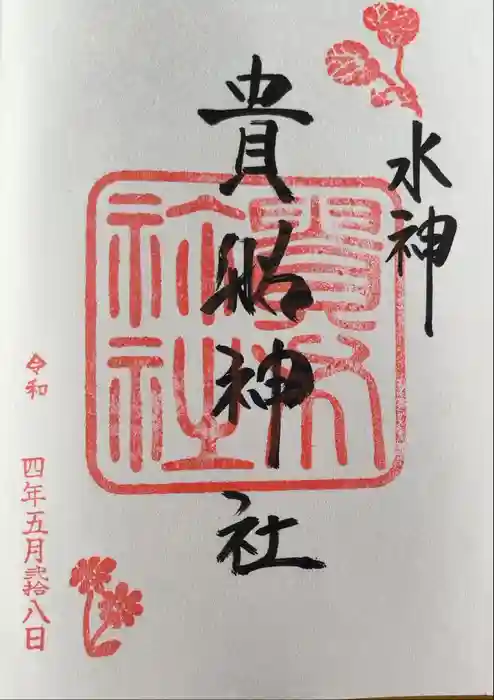 水神
貴船神社
令和
四年五月弐拾八日